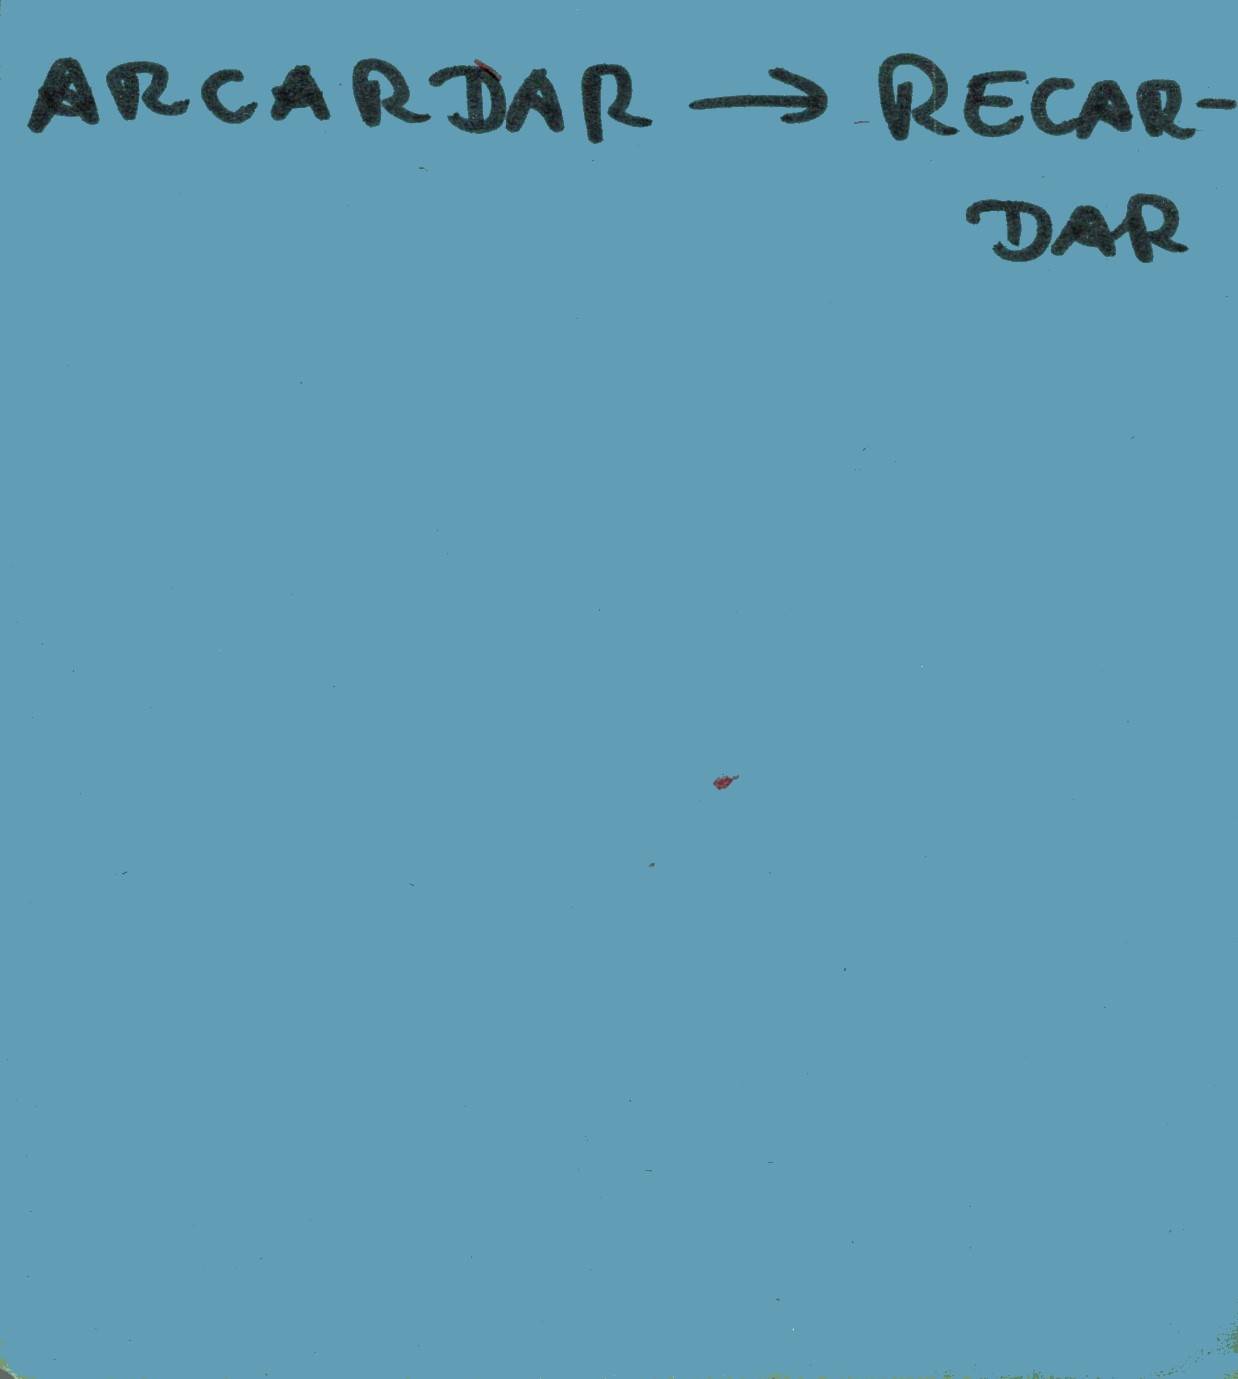 ARCARDAR → RECAR-
DAR